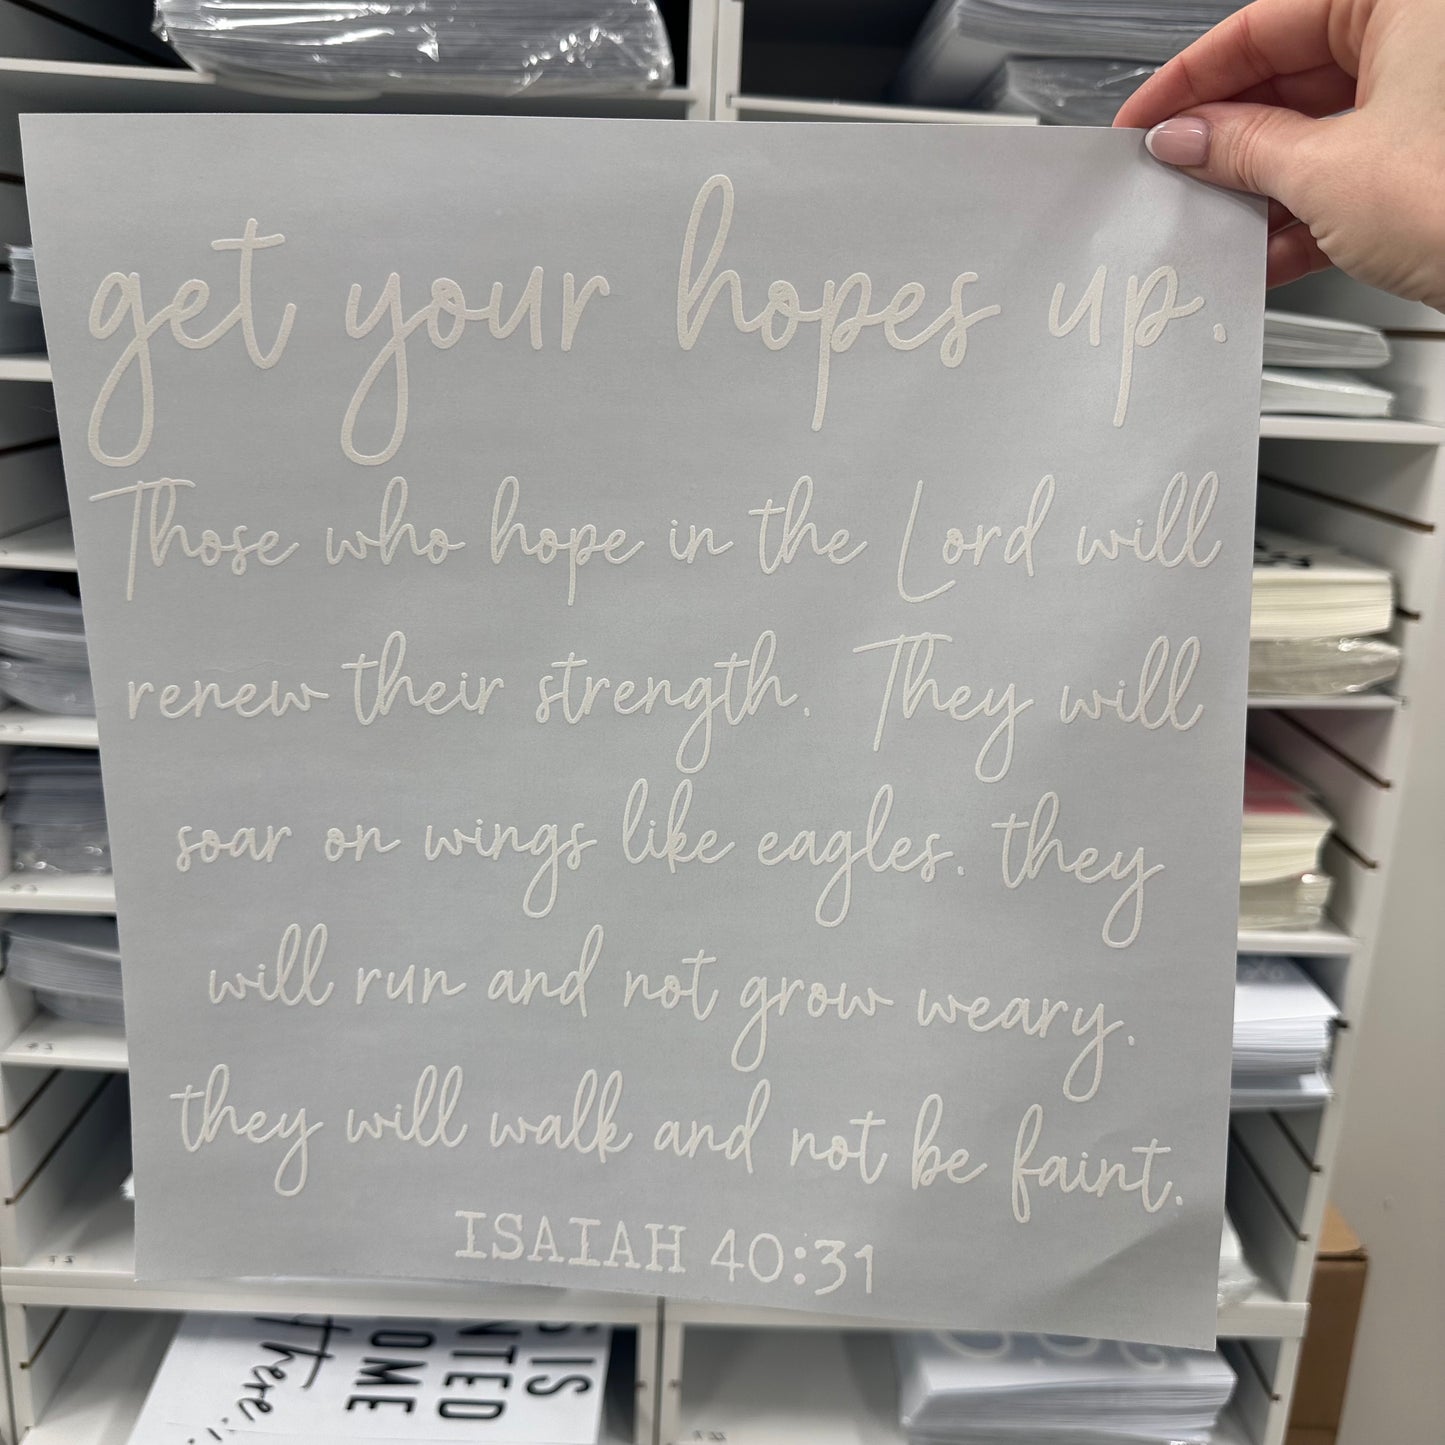 get your hopes up.
Those who hope in the Lord will
renew their strength. They will
soar on wings like eagles. they
will run and not grow weary.
they will walk and not be faint.
ISAIAH 40:31